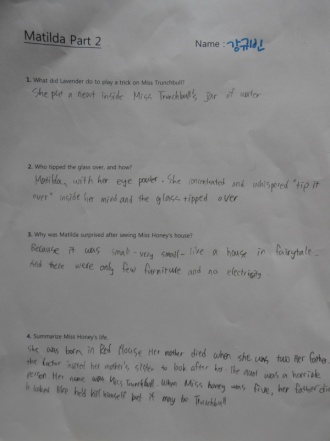 Matilda Part 2
Name : 강규빈
1. What did Lavender do to play a trick on Miss Trunchbull?
She put a newt inside Miss Trunchbull's jar of water
2. Who tipped the glass over, and how?
Matilda, with her eye power. She concentrated and whispered "tip it
over" inside her mind and the glass tipped over
3. Why was Matilda surprised after seeing Miss Honey's house?
Because it was small - very small - like a house in fairytale.
And there were only few furniture and no electricity.
4. Summarize Miss Honey's life.
She was born in Red House. Her mother died when she was two. Her father,
the doctor invited her mother's sister to look after her. The aunt was a horrible
person. Her name was Miss Trunchbull. When Miss honey was five, her father
it looked like he'd kill himself but it may be Trunchbull